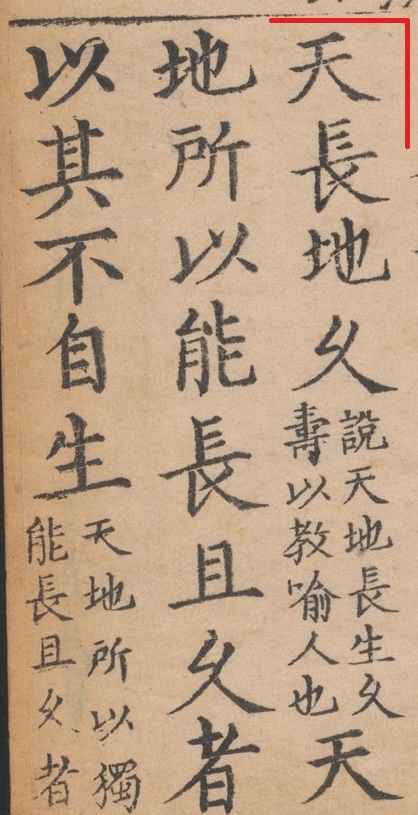 天長地久說天地長生久壽以教喻人也天
地所以能長且久者
以其不自生天地所以獨能長且久者